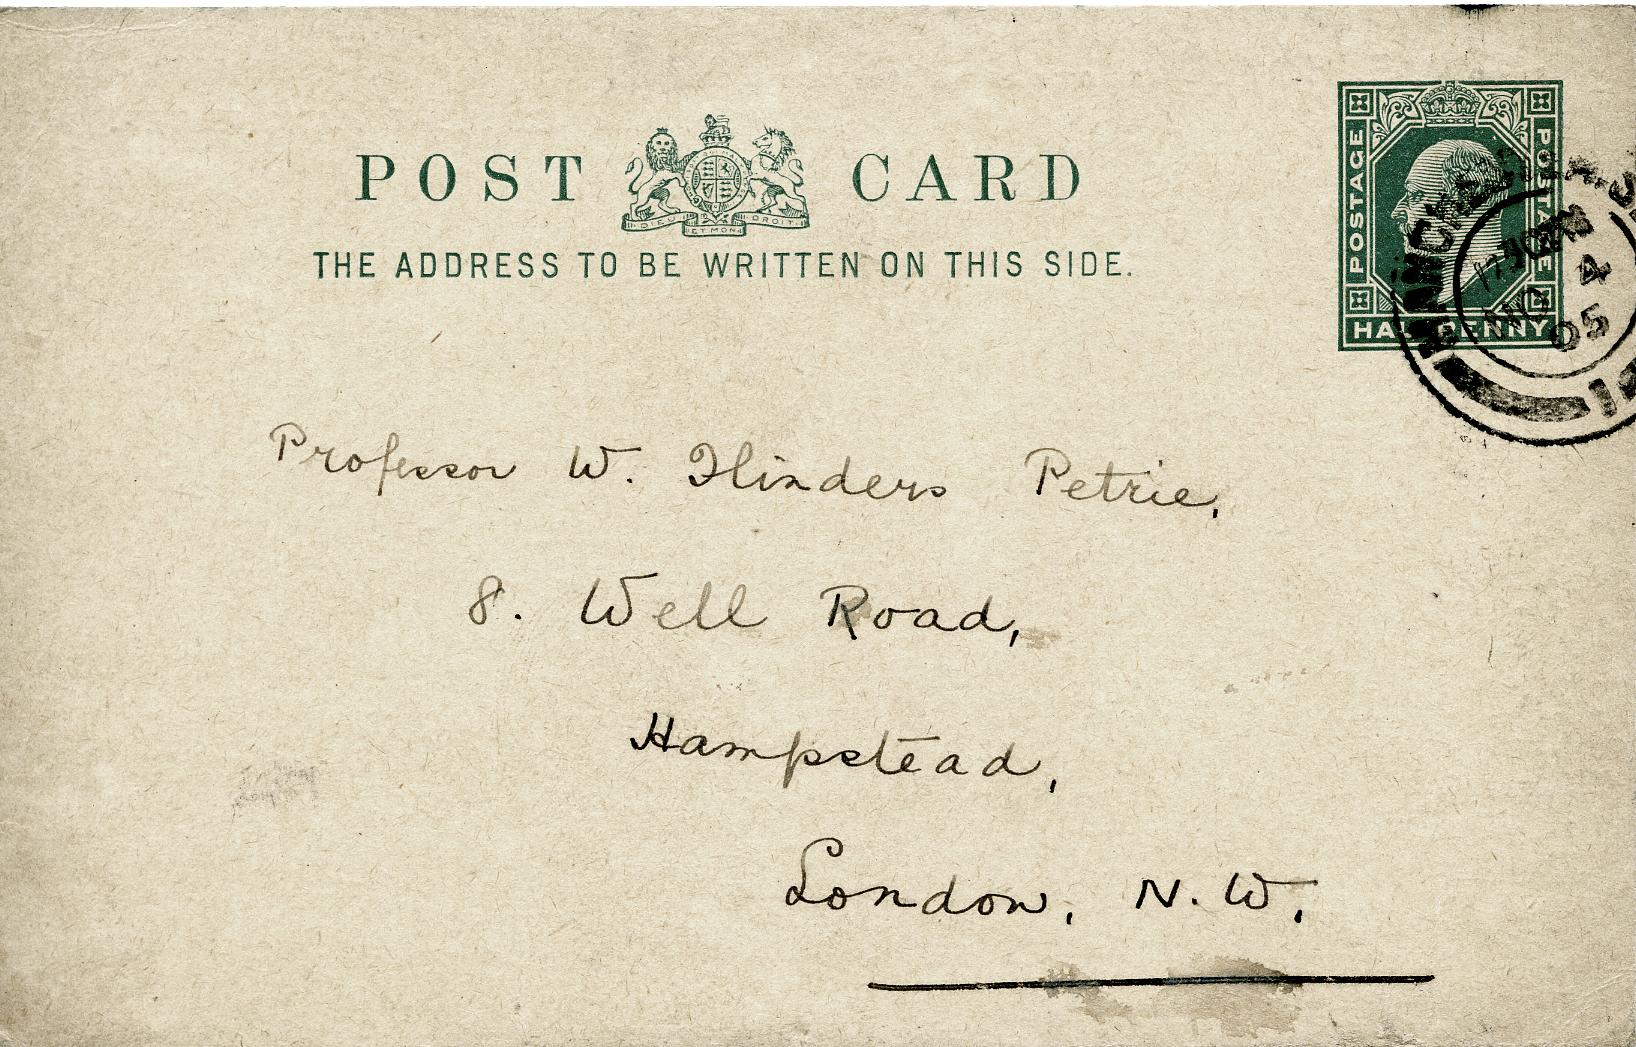 POST CARD
DIEU ET MON DROIT
THE ADDRESS TO BE WRITTEN ON THIS SIDE.
POSTAGE POSTAGE
HALFPENNY
MANCHESTER
NO 4
05
Professor W. Flinders Petrie,
8. Well Road,
Hampstead,
London, N.W.